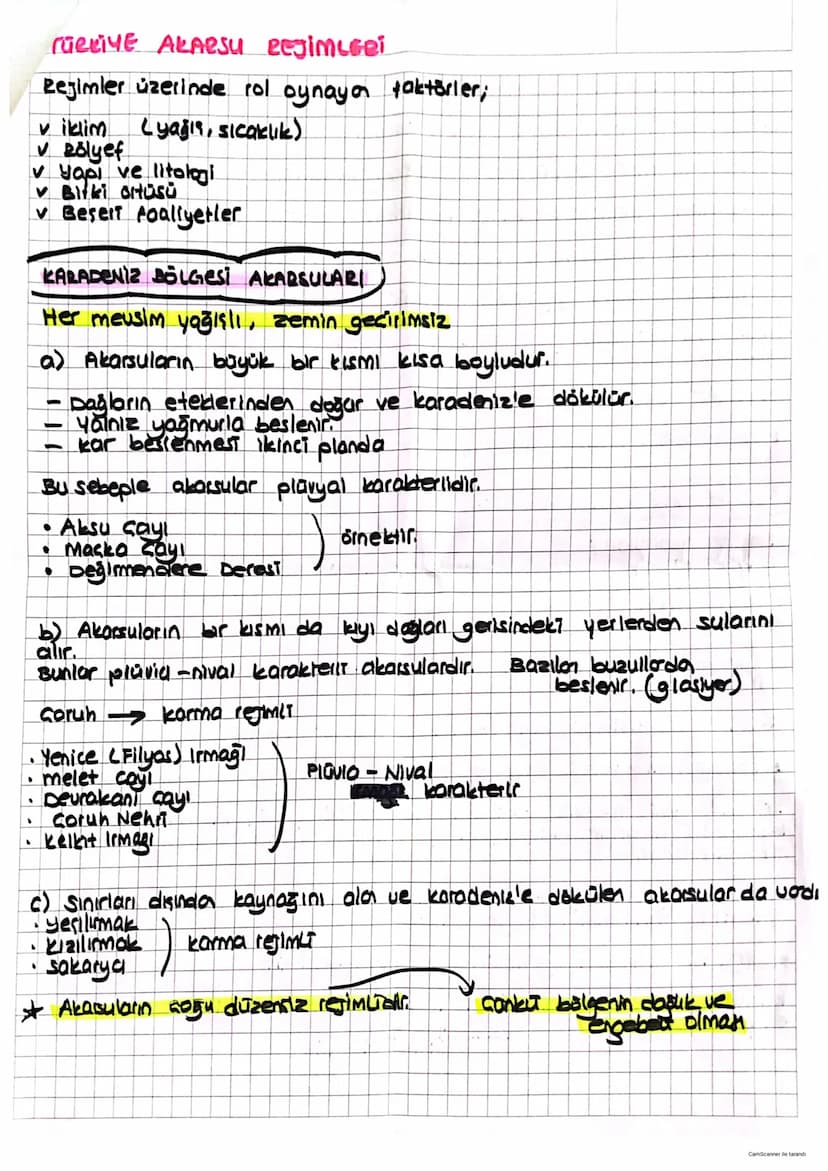 TÜRKİYE AKARSU REJİMLERİ
Rejimler üzerinde rol oynayan faktörler;
v iklim (yağış, sıcaklık)
v Rölyef
v Yapı ve litoloji
v Bitki örtüsü
v Beşeri faaliyetler
KARADENİZ BÖLGESİ AKARSULARI
Her mevsim yağışlı, zemin geçirimsiz
a) Akarsuların büyük bir kısmı kısa boyludur.
- Dağların eteklerinden doğar ve karadeniz'e dökülür.
- Yalnız yağmurla beslenir.
- kar beslenmesi ikinci planda
Bu sebeple akarsular plüvyal karakterlidir.
• Aksu çayı
• Maçka çayı örnektir.
• Değirmendere Deresi
b) Akarsuların bir kısmı da kıyı dağları gerisindeki yerlerden sularını
alır.
Bunlar plüvio-nival karakterli akarsulardır. Bazıları buzullardan
beslenir. (glasiyer)
Çoruh → karma rejimli
• Yenice (Filyos) Irmağı
• melet çayı Plüvio - Nival
• Devrakani çayı karakterli
• Çoruh Nehri
• Kelkit Irmağı
c) Sınırları dışından kaynağını alan ve karadeniz'e dökülen akarsular da vardı
• yeşilırmak
• kızılırmak karma rejimli
• sakarya
★ Akarsuların çoğu düzensiz rejimlidir. çünkü bölgenin dağlık ve
engebeli olması
CamScanner ile tarandı